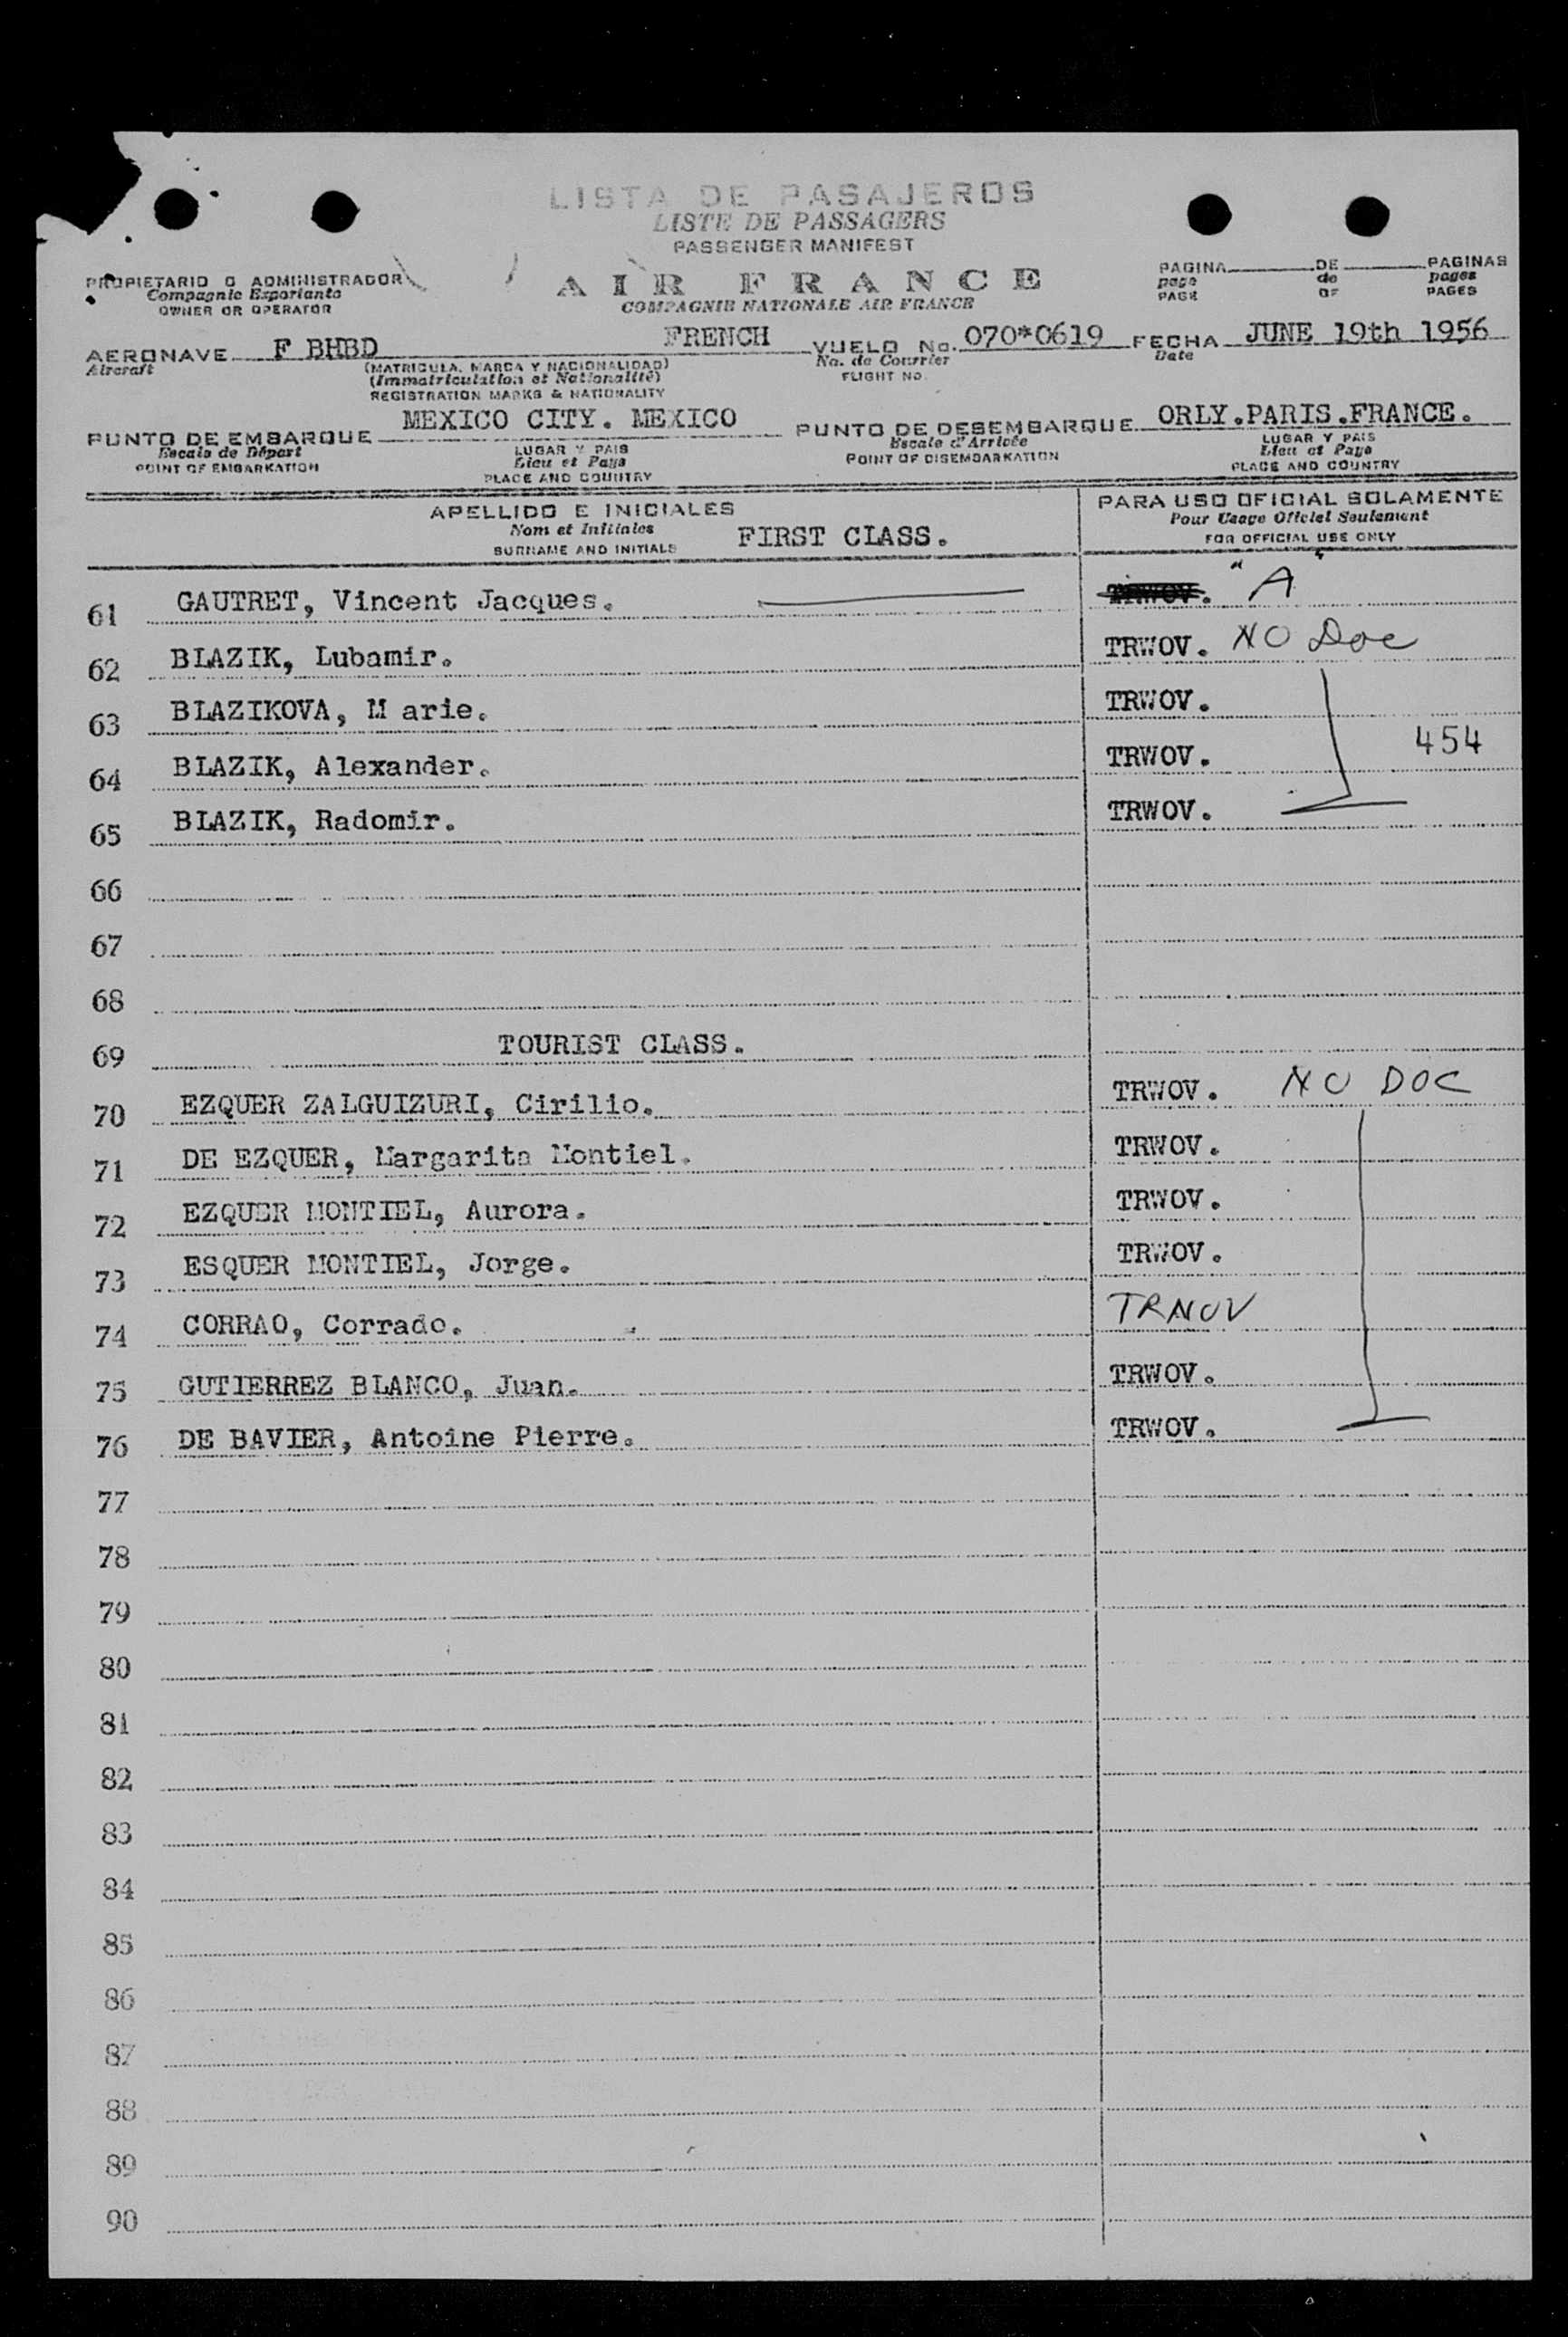 LISTA DE PASAJEROS
LISTE DE PASSAGERS
PASSENGER MANIFEST
AIR FRANCE
COMPAGNIE NATIONALE AIR FRANCE
PROPIETARIO O ADMINISTRADOR
Compagnie Exporianta
OWNER OR OPERATOR
PAGINA DE PAGINAS
page de pages
PAGE OF PAGES
AERONAVE F BHBD FRENCH VUELO No. 070*0619 FECHA JUNE 19th 1956
Aircraft (MATRICULA, MARCA Y NACIONALIDAD) No. de Courrier Date
(Immatriculation et Nationalité) FLIGHT No.
REGISTRATION MARKS & NATIONALITY
PUNTO DE EMBARQUE MEXICO CITY. MEXICO PUNTO DE DESEMBARQUE ORLY.PARIS.FRANCE.
Escale de Départ LUGAR Y PAIS Escale d'Arrivée LUGAR Y PAIS
POINT OF EMBARKATION Lieu et Pays POINT OF DISEMBARKATION Lieu et Pays
PLACE AND COUNTRY PLACE AND COUNTRY
APELLIDO E INICIALES PARA USO OFICIAL SOLAMENTE
Nom et Initiales FIRST CLASS. Pour Usage Officiel Seulement
SURNAME AND INITIALS FOR OFFICIAL USE ONLY
61 GAUTRET, Vincent Jacques. TRWOV. "A"
62 BLAZIK, Lubamir. TRWOV. NO Doc
63 BLAZIKOVA, M arie. TRWOV.
64 BLAZIK, Alexander. TRWOV. 454
65 BLAZIK, Radomir. TRWOV.
66
67
68
69 TOURIST CLASS.
70 EZQUER ZALGUIZURI, Cirilio. TRWOV. NO DOC
71 DE EZQUER, Margarita Montiel. TRWOV.
72 EZQUER MONTIEL, Aurora. TRWOV.
73 ESQUER MONTIEL, Jorge. TRWOV.
74 CORRAO, Corrado. TRNOV
75 GUTIERREZ BLANCO, Juan. TRWOV.
76 DE BAVIER, Antoine Pierre. TRWOV.
77
78
79
80
81
82
83
84
85
86
87
88
89
90